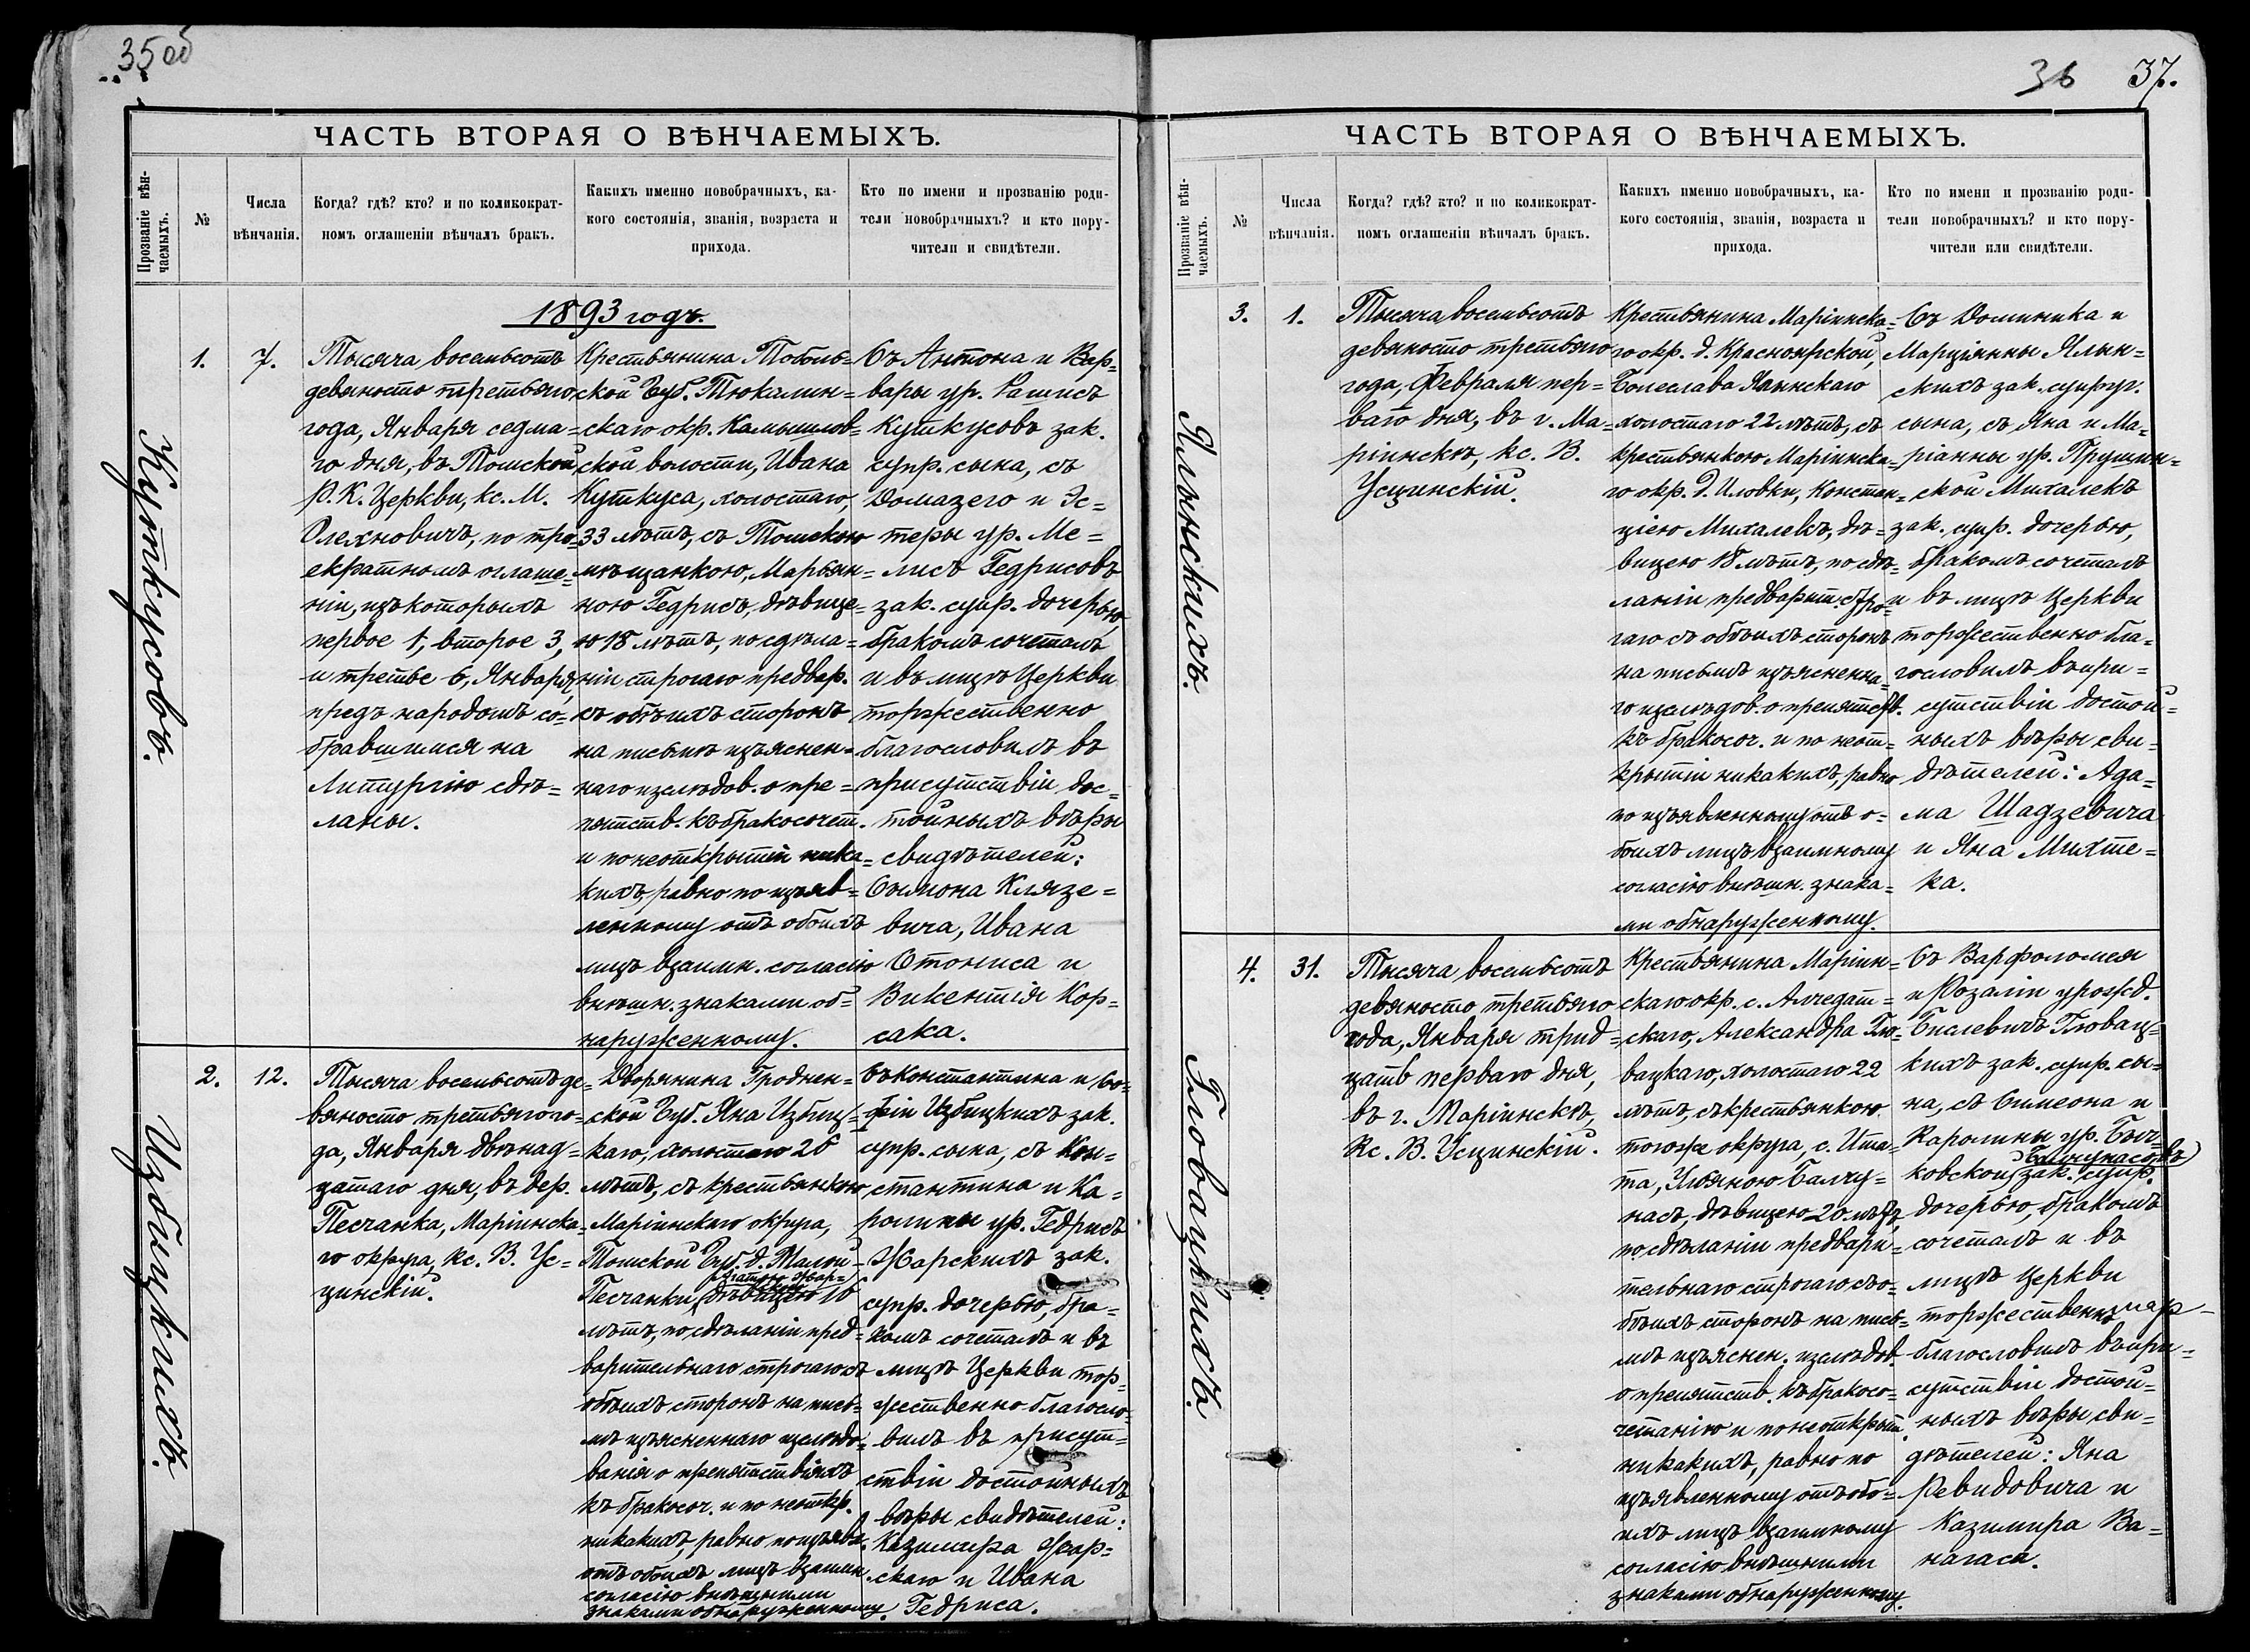 35 об
ЧАСТЬ ВТОРАЯ О ВѢНЧАЕМЫХЪ.
Прозваніе вѣн-
чаемыхъ.
№
Числа
вѣнчанія.
Когда? гдѣ? кто? и по коликократ-
номъ оглашеніи вѣнчалъ бракъ.
Какихъ именно новобрачныхъ, ка-
кого состоянія, званія, возраста и
прихода.
Кто по имени и прозванію роди-
тели новобрачныхъ? и кто пору-
чители и свидѣтели.
1893 годъ.
Куткусовъ.
1.
7.
Тысяча восемьсотъ
девяносто третьяго
года, Января седма=
го дня, въ Томской
Р. К. Церкви, кс. М.
Олехновичъ, по тро=
екратномъ оглаше=
ніи, изъ которыхъ
первое 1, второе 3,
и третье 6, Января,
предъ народомъ со=
бравшимся на
Литургію сдѣ=
ланы.
Крестьянина Тоболь=
ской Губ. Тюкалин=
скаго окр. Камышлов=
ской волости, Ивана
Куткуса, холостаго,
33 лѣтъ, съ Томскою
мѣщанкою, Марьян=
ною Гедрисъ, дѣвице=
ю 18 лѣтъ, по сдѣла=
ніи строгаго предвар.
съ обѣихъ сторонъ
на письмѣ изъяснен=
наго изслѣдов. о пре=
пятств. къ бракосочет.
и по неоткрытіи ника=
кихъ, равно по изъяв=
ленному отъ обоихъ
лицъ взаимн. согласію
внѣшн. знаками об=
наруженному.
Съ Антона и Вар=
вары ур. Рашисъ
Куткусовъ зак.
супр. сына, съ
Домазего и Эс=
теры ур. Ме=
лисъ Гедрисовъ
зак. супр. дочерью,
бракомъ сочеталъ
и въ лицѣ Церкви
торжественно
благословилъ въ
присутствіи дос=
тойныхъ вѣры
свидѣтелей:
Сымона Клязе=
вича, Ивана
Стониса и
Викентія Кор=
сака.
Избицкихъ.
2.
12.
Тысяча восемьсотъ де=
вяносто третьяго го=
да, Января двѣнад=
цатаго дня, въ дер.
Песчанка, Маріинска=
го округа, кс. В. Ус=
цинскій.
Дворянина Гроднен=
ской Губ. Яна Избиц=
каго, холостаго 26
лѣтъ, съ крестьянкою
Маріинскаго округа,
Томской Губ. д. Малой
Песчанки, дѣвицею 16
лѣтъ, по сдѣланіи пред=
варительнаго строгаго съ
обѣихъ сторонъ на пись=
мѣ изъясненнаго изслѣдо=
ванія о препятствіяхъ
къ бракосоч. и по неоткр.
никакихъ, равно по изъявл.
отъ обоихъ лицъ взаимн.
согласію внѣшними
знаками обнаруженному.
Съ Константина и Со=
фіи Избицкихъ зак.
супр. сына, съ Кон=
стантина и Ка=
ролины ур. Гедрисъ
Жарскихъ зак.
супр. дочерью, бра=
комъ сочеталъ и въ
лицѣ Церкви тор=
жественно благосло=
вилъ въ присут=
ствіи достойныхъ
вѣры свидѣтелей:
Казимира Жар=
скаго и Ивана
Гедриса.
36 37.
ЧАСТЬ ВТОРАЯ О ВѢНЧАЕМЫХЪ.
Прозваніе вѣн-
чаемыхъ.
№
Числа
вѣнчанія.
Когда? гдѣ? кто? и по коликократ-
номъ оглашеніи вѣнчалъ бракъ.
Какихъ именно новобрачныхъ, ка-
кого состоянія, званія, возраста и
прихода.
Кто по имени и прозванію роди-
тели новобрачныхъ? и кто пору-
чители или свидѣтели.
Ялынскихъ.
3.
1.
Тысяча восемьсотъ
девяносто третьяго
года, Февраля пер=
ваго дня, въ г. Ма=
ріинскѣ, кс. В.
Усцинскій.
Крестьянина Маріинска=
го окр. д. Красноярской,
Болеслава Ялынскаго
холостаго 22 лѣтъ, съ
крестьянкою Маріинска=
го окр. д. Иловки, Констан=
ціею Михалекъ, дѣ=
вицею 18 лѣтъ, по сдѣ=
ланіи предварит. стро=
гаго съ обѣихъ сторонъ
на письмѣ изъясненна=
го изслѣдов. о препятств.
къ бракосоч. и по неот=
крытіи никакихъ, равно
по изъявленному отъ о=
боихъ лицъ взаимному
согласію внѣшн. знака=
ми обнаруженному.
Съ Доминика и
Марціянны Ялын=
скихъ зак. супруг.
сына, съ Яна и Ма=
ріанны ур. Прушин=
ской Михалекъ
зак. супр. дочерью,
бракомъ сочеталъ
и въ лицѣ Церкви
торжественно бла=
гословилъ въ при=
сутствіи достой=
ныхъ вѣры сви=
дѣтелей: Ада=
ма Шадзевича
и Яна Михте=
ка.
Гловацкихъ.
4.
31.
Тысяча восемьсотъ
девяносто третьяго
года, Января трид=
цать перваго дня,
въ г. Маріинскѣ,
кс. В. Усцинскій.
Крестьянина Маріин=
скаго окр. с. Алчедат=
скаго, Александра Гло=
вацкаго, холостаго 22
лѣтъ, съ крестьянкою
того же округа, с. Ита=
та, Ульяною Балчу=
насъ, дѣвицею 20 лѣтъ,
по сдѣланіи предвари=
тельнаго строгаго съ о=
бѣихъ сторонъ на пись=
мѣ изъяснен. изслѣдов.
о препятств. къ бракосо=
четанію и по неоткрыт.
никакихъ, равно по
изъявленному отъ обо=
ихъ лицъ взаимному
согласію внѣшними
знаками обнаруженному.
Съ Варфоломея
и Розаліи урожд.
Бислевичъ Гловац=
кихъ зак. супр. сы=
на, съ Симеона и
Каролины ур. Быч=
ковской Балчунасовъ
зак. супр.
дочерью, бракомъ
сочеталъ и въ
лицѣ Церкви
торжественно
благословилъ въ при=
сутствіи достой=
ныхъ вѣры сви=
дѣтелей: Яна
Ревидовича и
Казимира Ва=
нагаса.